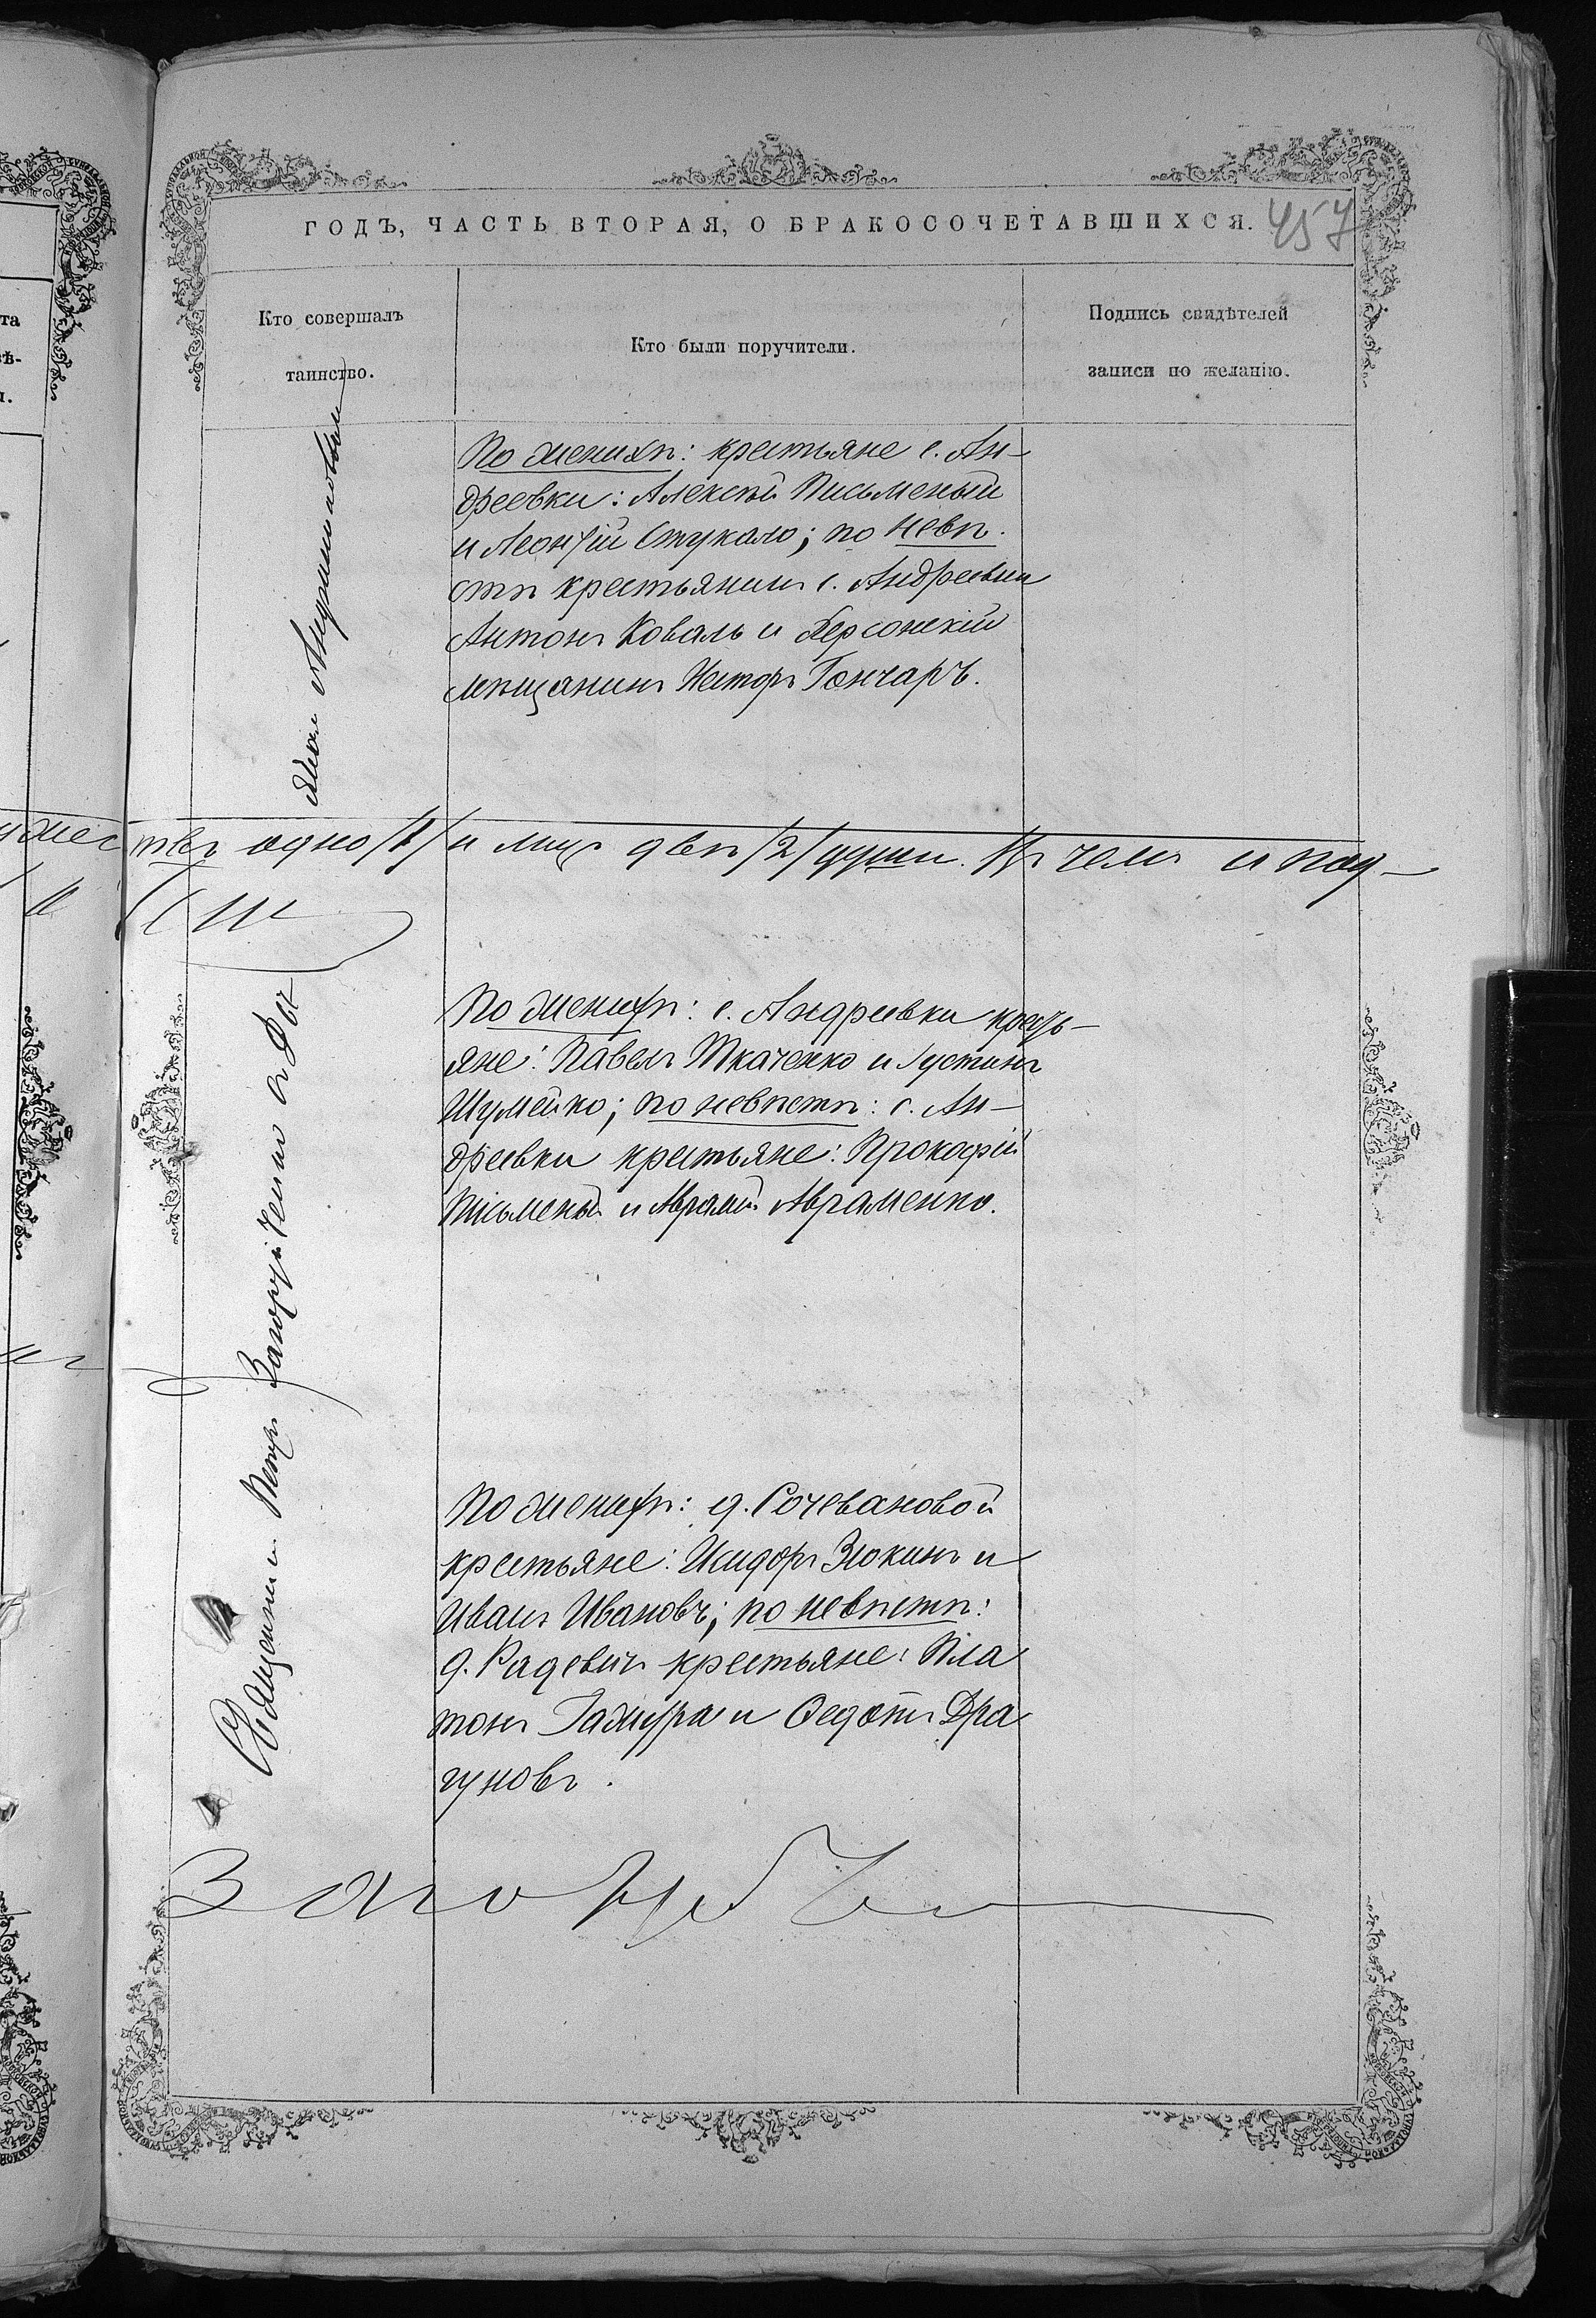 ГОДЪ, ЧАСТЬ ВТОРАЯ, О БРАКОСОЧЕТАВШИХСЯ. 457
Кто совершалъ
таинство.
Кто были поручители.
Подпись свидѣтелей
записи по желанію.
По женихѣ: крестьяне с. Ан-
дреевки: Алексѣй Письменый
и Леонтій Стукало; по невѣ-
стѣ крестьянинъ с. Андреевки
Антонъ Коваль и Херсонскій
мѣщанинъ Несторъ Гончаръ.
одно /1/ и лицъ двѣ /2/ души. Въ чемъ и под-
По женихѣ: с. Андреевки кресть-
яне: Павелъ Ткаченко и Іустинъ
Шумейко; по невѣстѣ: с. Ан-
дреевки крестьяне: Прокофій
Письменый и Аврамій Авраменко.
Священникъ Петръ
По женихѣ: д. Сочевановой
крестьяне: Исидоръ Зюкинъ и
Иванъ Ивановъ; по невѣстѣ:
д. Радевичъ крестьяне: Пла
тонъ Гажура и Ѳедотъ Дра
гуновъ.